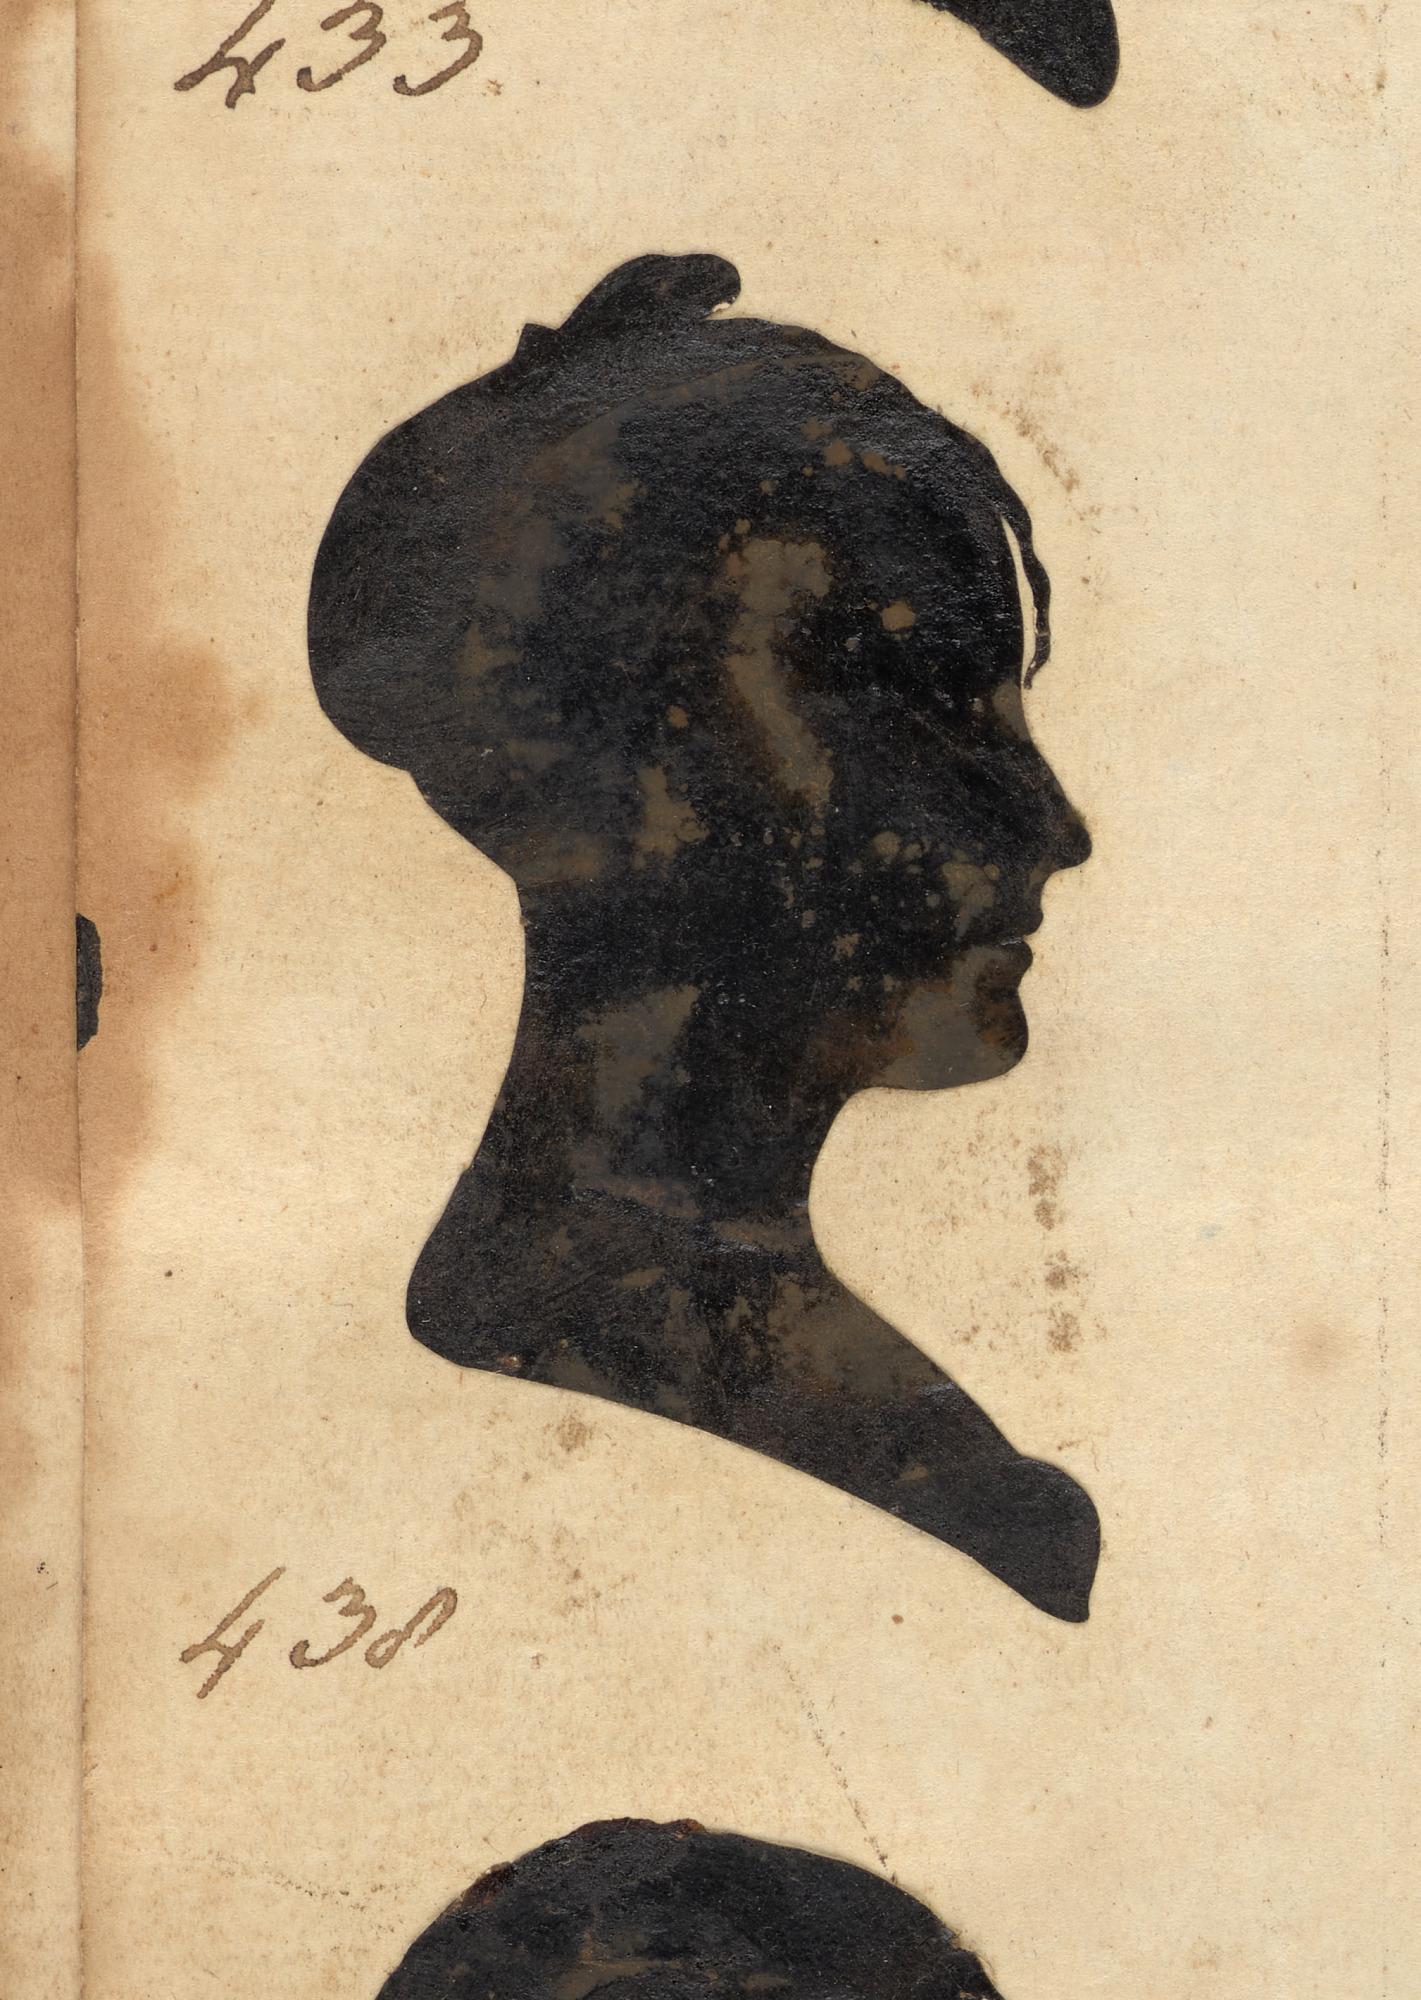 433
438